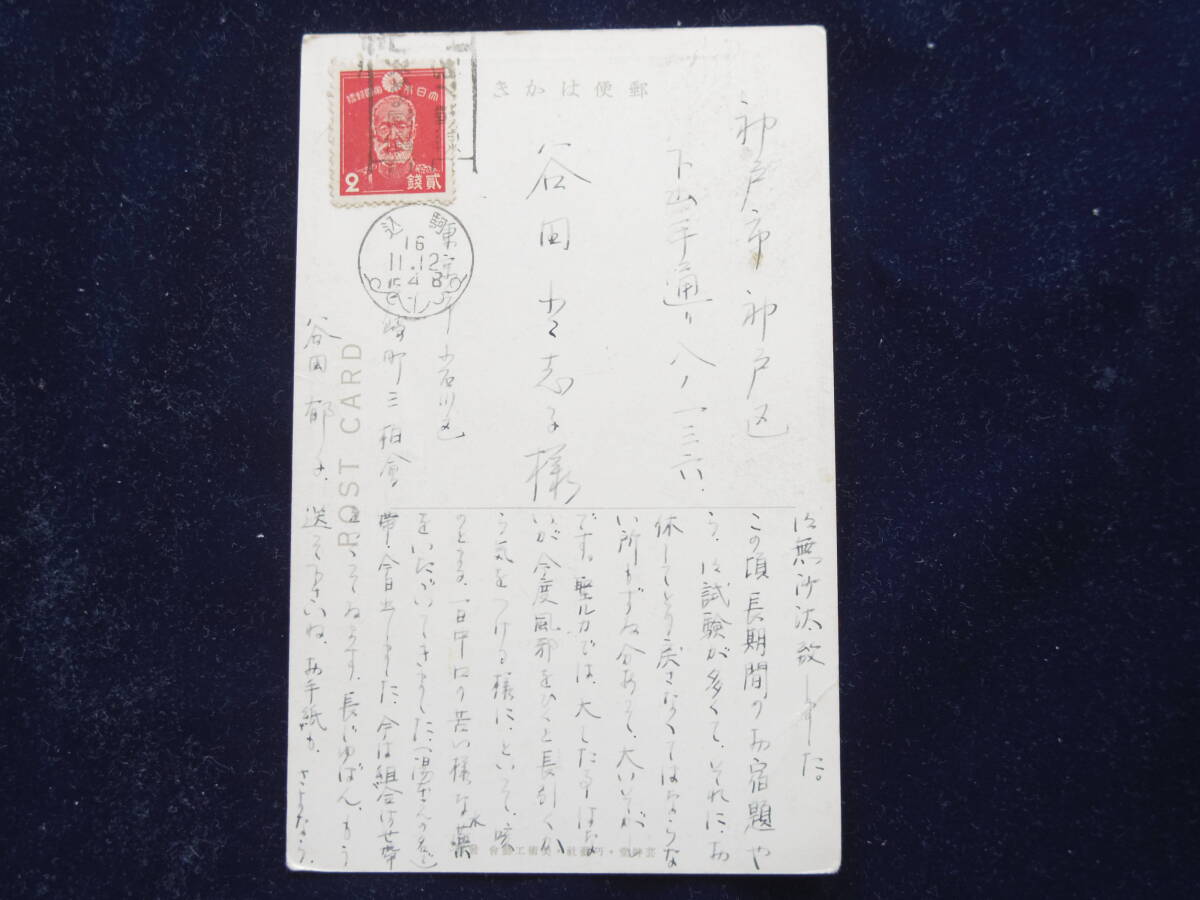 郵便はかき
大日本帝國郵便
2
貳錢
駒込
16
11.12
神戸市神戸区
下山手通り八ノ一三六.
谷田 志る様
東京市小石川区
崎町三 柏會
谷田郁
POST CARD
御無沙汰致しました。
この頃長期間のお宿題や
う、御試験が多くて、それに、お
休してとり戻さなくてはならな
い所もずゐ分あつて、大いそがし
です。堅ルカでは、大した事はな
いが今度風邪をひくと長引くか
ら気をつける様に、といつて、咳
のとまる、一日中口の苦い様な水薬
をいただいてきました、(湯ざんの
帯、今日出しました、今は組合はせ帯
をしてゐます、長じゆばん、もう
送つて下さいね、お手紙も、さようなら、